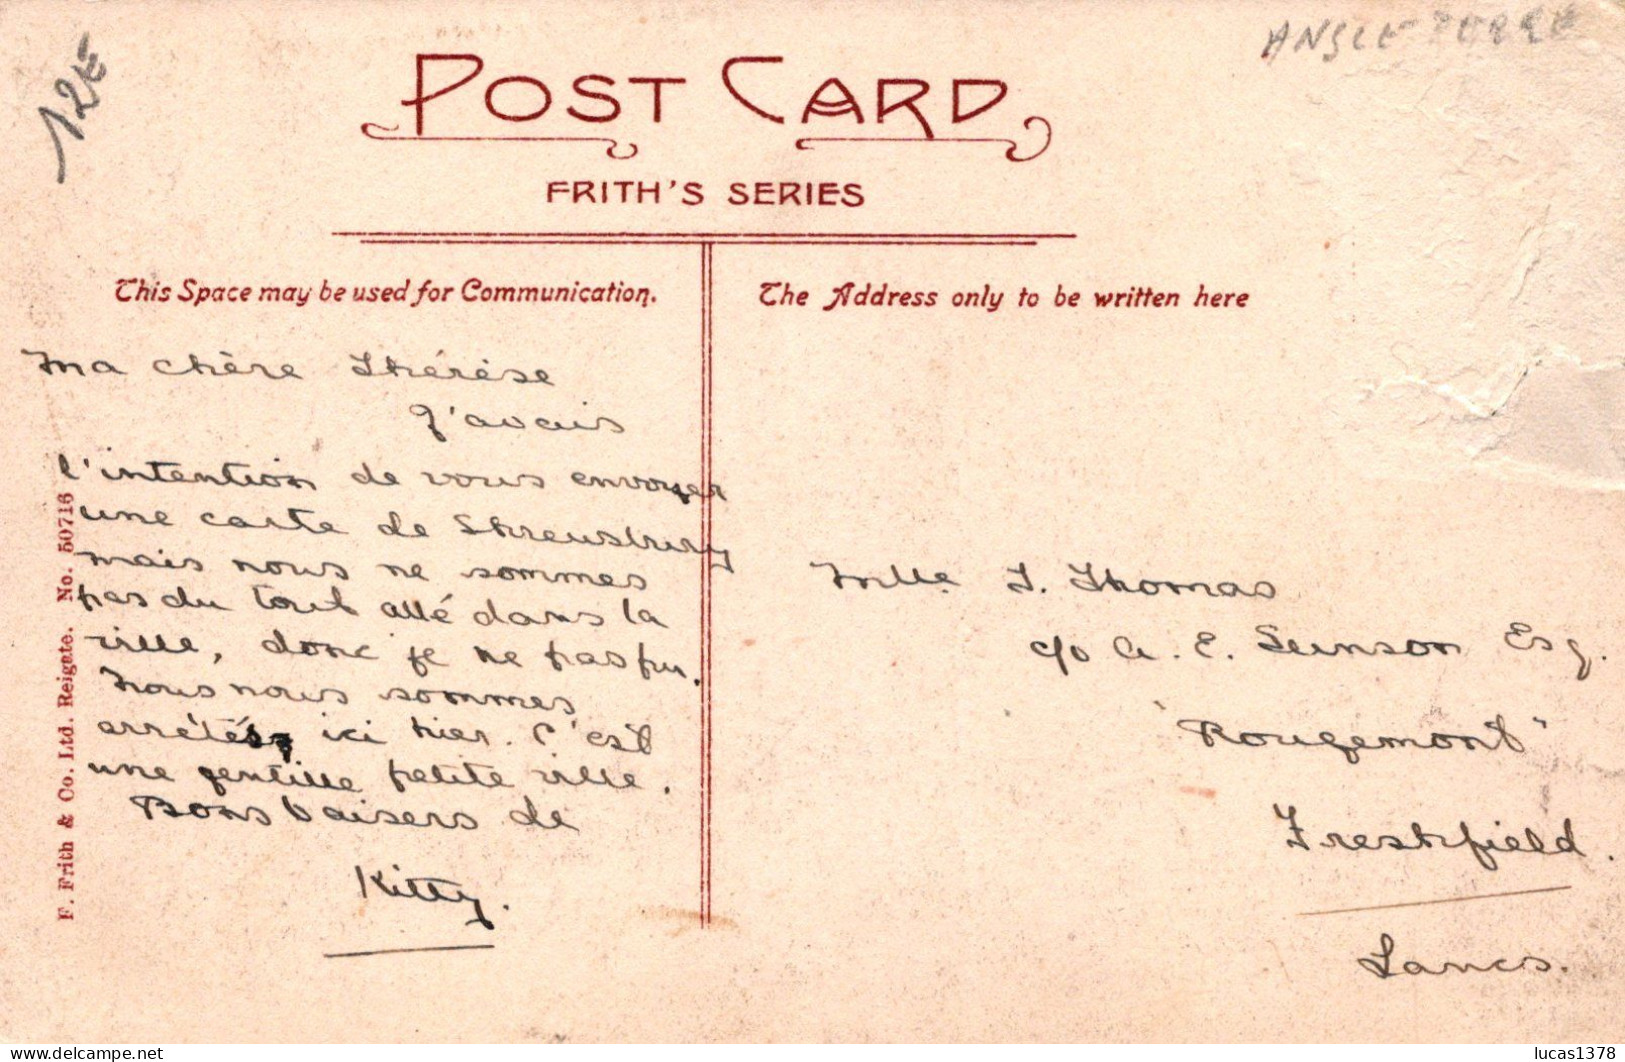 12€
ANGLETERRE
POST CARD
FRITH'S SERIES
This Space may be used for Communication.
The Address only to be written here
Ma chère Thérèse
J'avais
l'intention de vous envoyer
une carte de Shrewsbury
mais nous ne sommes
pas du tout allé dans la
ville, donc je ne pas pu.
Nous nous sommes
arrêtés ici hier. C'est
une gentille petite ville.
Bons baisers de
Kitty.
Mlle. T. Thomas
c/o A. E. Esq.
"Rougemont"
Freshfield.
Lancs.
F. Frith & Co. Ltd. Reigate. No. 50716
delcampe.net
lucas1378